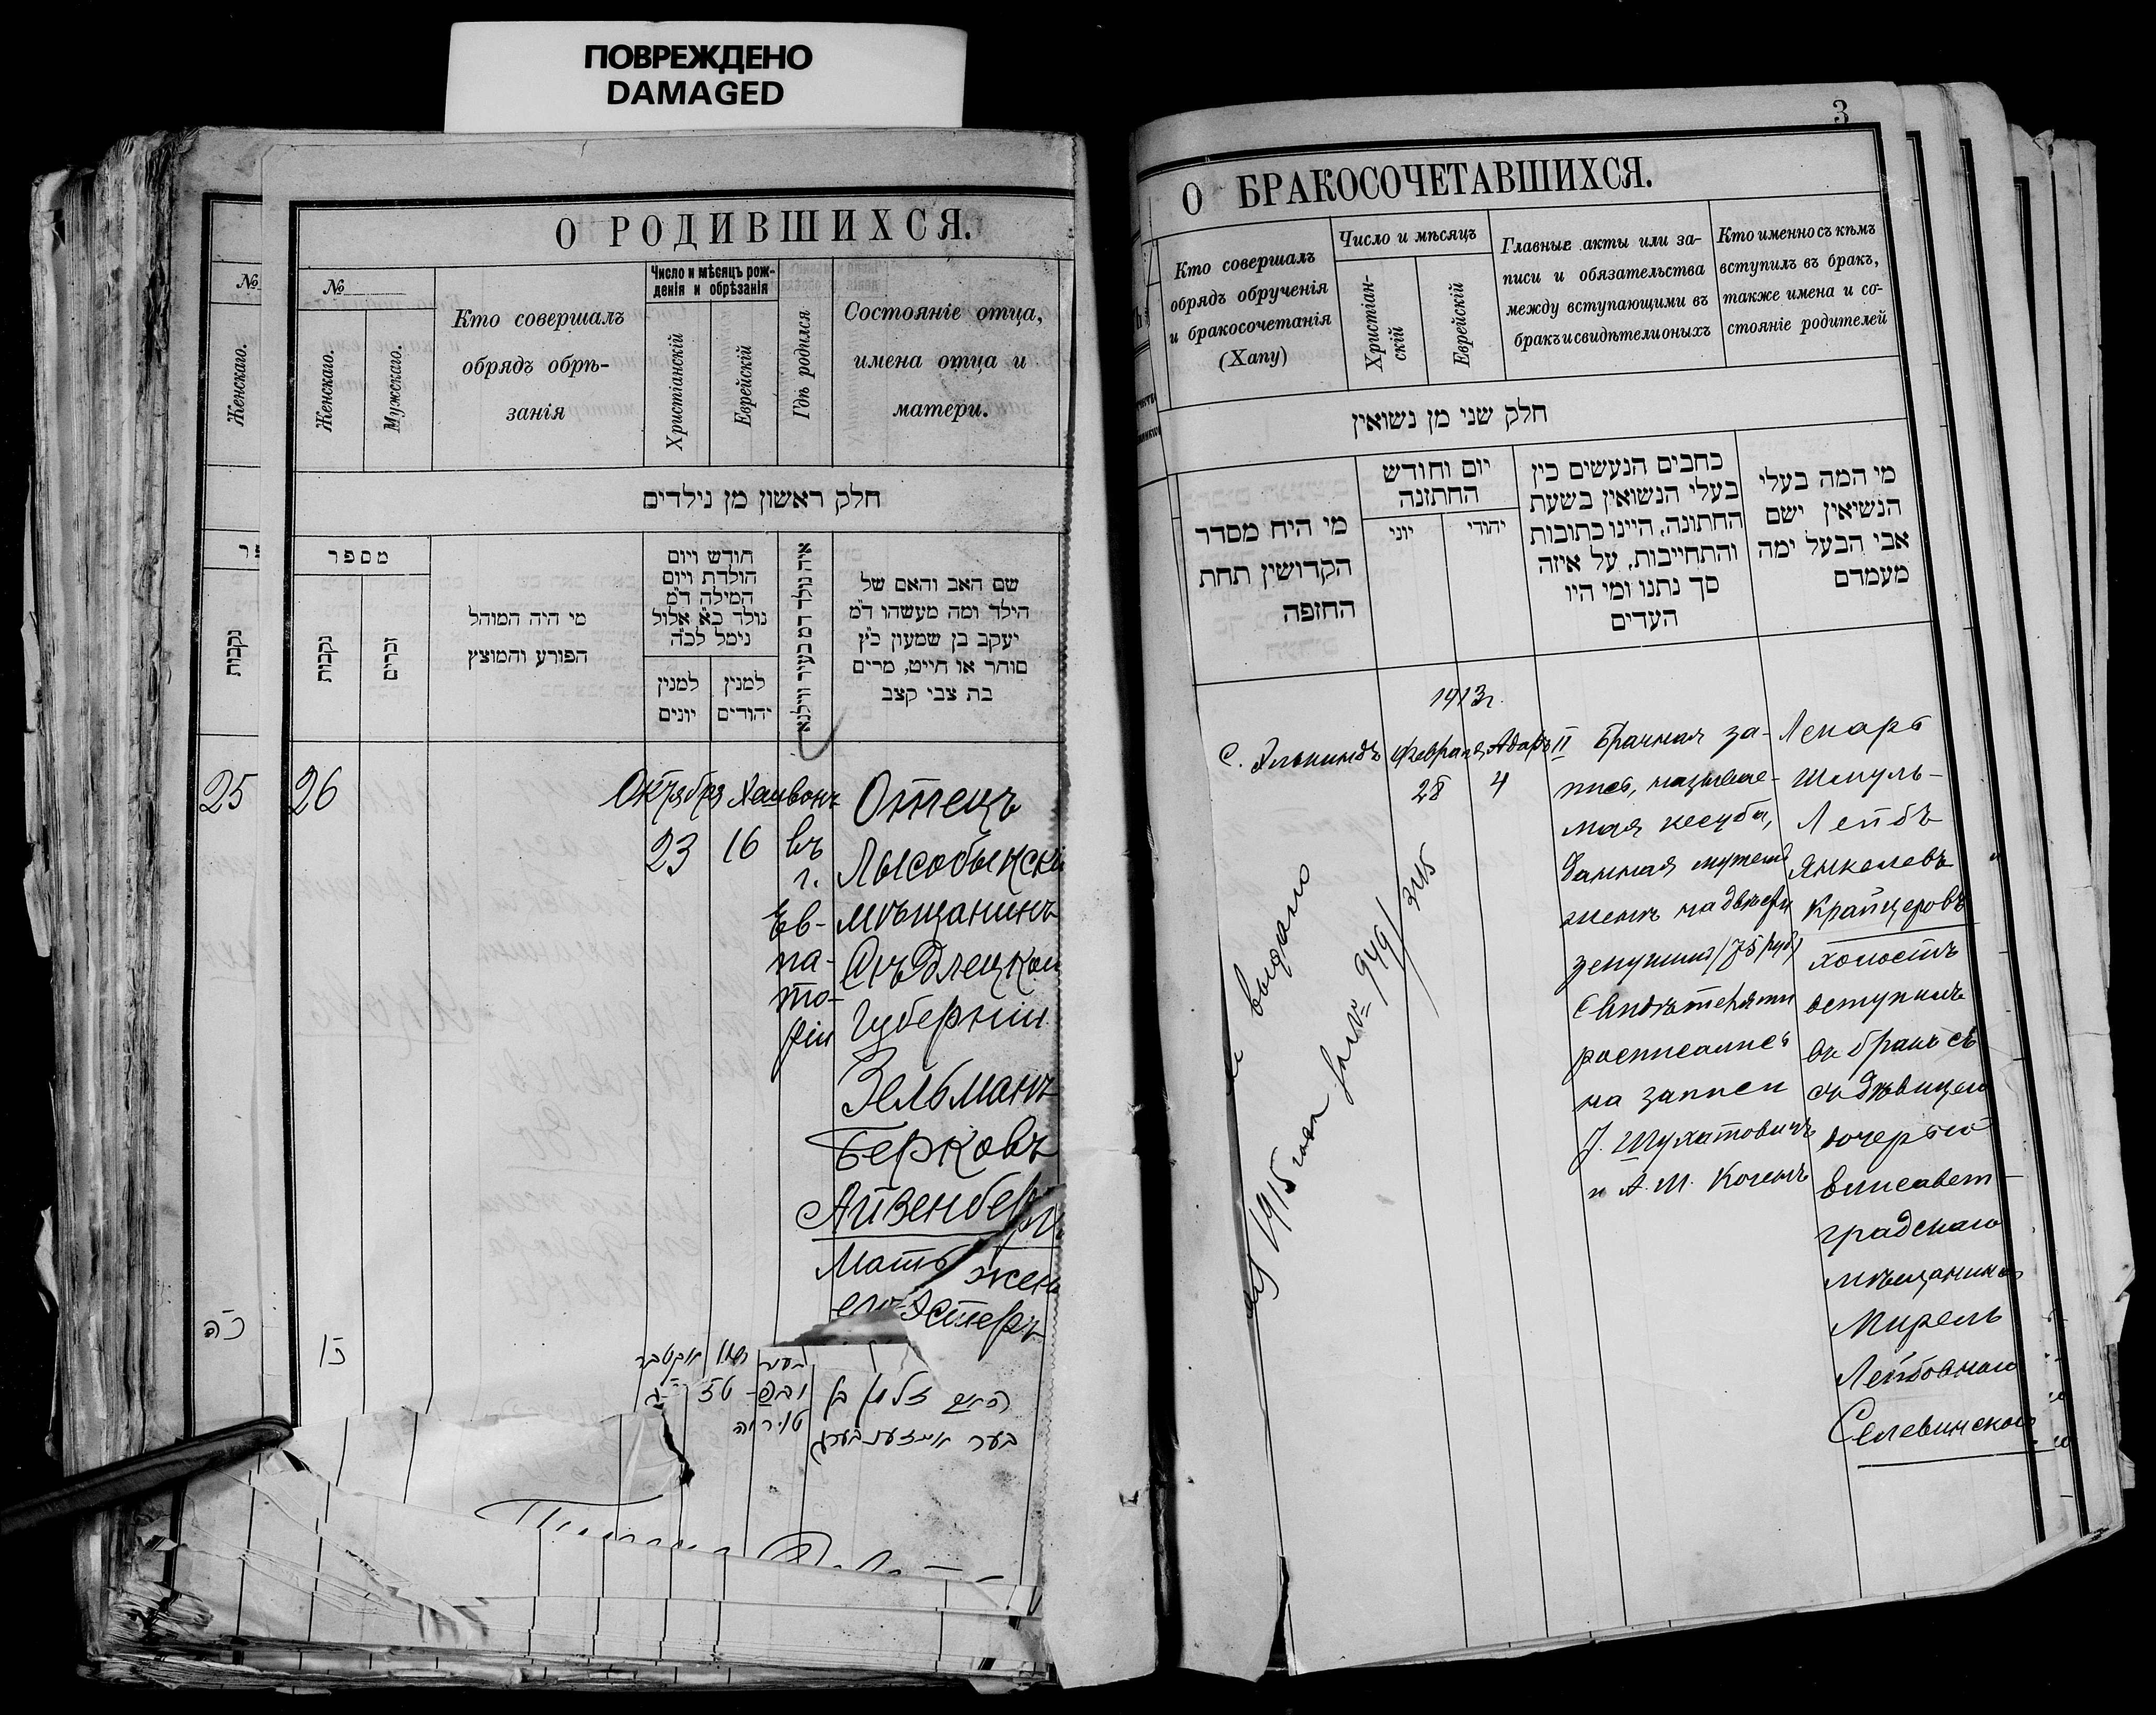 ПОВРЕЖДЕНО
DAMAGED
О РОДИВШИХСЯ.
№
Женскаго.
№
Женскаго.
Мужскаго.
Кто совершалъ
обрядъ обрѣ-
занія
Число и мѣсяцъ рож-
денія и обрѣзанія
Христіанскій
Еврейскій
Гдѣ родился
Состояніе отца,
имена отца и
матери.
חלק ראשון מן נילדים
מספר
נקבות
נקבות
זכרים
מי היה המוהל
הפורע והמוצץ
חודש ויום
הולדת ויום
המילה ד״מ
נולד כ״א אלול
נימל לכ״ה
למנין
יונים
למנין
יהודים
איה נולד דמ בעיר ווילנא
שם האב והאם של
הילד ומה מעשהו ד״מ
יעקב בן שמעון כ״ץ
סוחר או חייט, מרים
בת צבי קצב
25
26
Октября
23
Хешвонъ
16
въ
г.
Ев-
па-
то-
ріи
Отецъ
Лысобыкскі
мѣщанинъ
Сѣдлецкой
Губерніи
Зельманъ
Берковъ
Айзенбергъ
Мать жена
его Эстеръ
כה
אקטבר
טז
זלמן בן
בער
3
О БРАКОСОЧЕТАВШИХСЯ.
Кто совершалъ
обрядъ обрученія
и бракосочетанія
(Хапу)
Число и мѣсяцъ
Христіан-
скій
Еврейскій
Главные акты или за-
писи и обязательства
между вступающими въ
бракъ и свидѣтели оныхъ
Кто именно съ кѣмъ
вступилъ въ бракъ,
также имена и со-
стояніе родителей
חלק שני מן נשואין
מי היח מסדר
הקדושין תחת
החופה
יום וחודש
החתונה
יוני
יהודי
כחבים הנעשים בין
בעלי הנשואין בשעת
החתונה, היינו כתובות
והתחייבות, על איזה
סך נתנו ומי היו
העדים
מי המה בעלי
הנשיאין ישם
אבי הבעל ימה
מעמדם
1913 г.
С. Элькиндъ
Февраля
28
Адаръ II
4
Брачная за-
пись, называе-
мая кесуба,
данная мужемъ
женѣ на двѣсти
зелушиыъ (75 руб)
Свидѣтелями
росписались
на записи
І. Шухатовичъ
и А. М. Когенъ
Лекарь
Шмуль-
Лейбъ
Янкелевъ
Крайцеровъ
холостъ
вступилъ
въ бракъ съ
съ дѣвицею
дочерью
Елисавет-
градскаго
мѣщанина
Мирель
Лейбовною
Селевинскою
выдано
1915 года за № 949/345